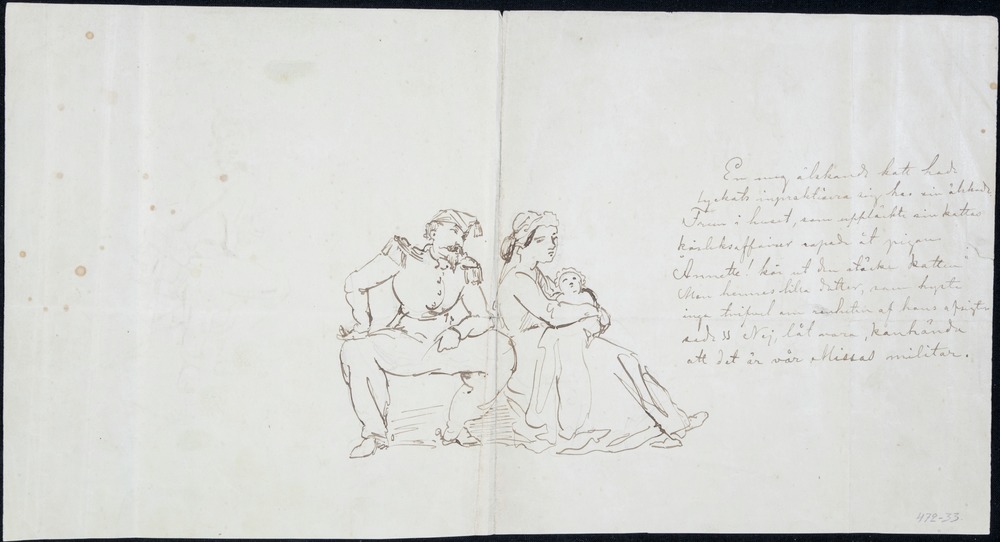 En ung älskande katt hade
lyckats inpraktisera sig hos sin älskade
Frun i huset, som upptäckte sin kattas
kärleksaffairer ropade åt pigan
"Annette! kör ut den stäcka katten"
Men hennes lilla dotter, som hyste
inga tvifvel om renheten af hans afsigter
sade "Nej, låt vara, kanhända
att det är vår Missas militär.
472-33